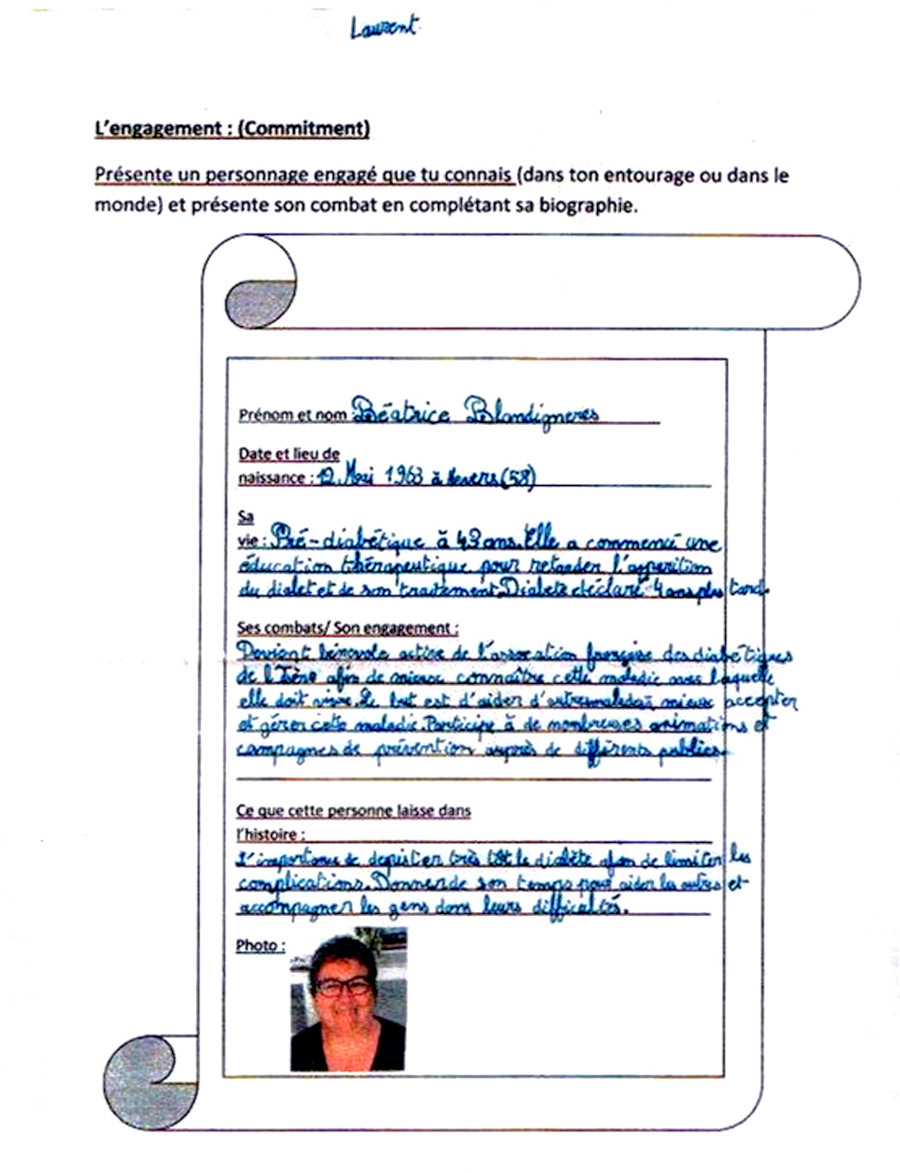 Laurent
L'engagement : (Commitment)
Présente un personnage engagé que tu connais (dans ton entourage ou dans le
monde) et présente son combat en complétant sa biographie.
Prénom et nom : Béatrice Blandigneres
Date et lieu de
naissance : 12 Mai 1963 à Nevers (58)
Sa
vie : Pré-diabétique à 49 ans. Elle a commencé une
éducation thérapeutique pour retarder l'apparition
du diabet et de son traitement. Diabète déclaré 4 ans plus tard.
Ses combats/ Son engagement :
Devient bénévole active de l'association française des diabétiques
de l'Isère afin de mieux connaître cette maladie avec laquelle
elle doit vivre. Le but est d'aider d'autres malades à mieux accepter
et gérer cette maladie. Participe à de nombreuses animations et
campagnes de prévention auprès de différents publics
Ce que cette personne laisse dans
l'histoire :
L'importance de depister très tôt le diabète afin de limiter les
complications. Donner de son temps pour aider les autres et
accompagner les gens dans leurs difficultés.
Photo :